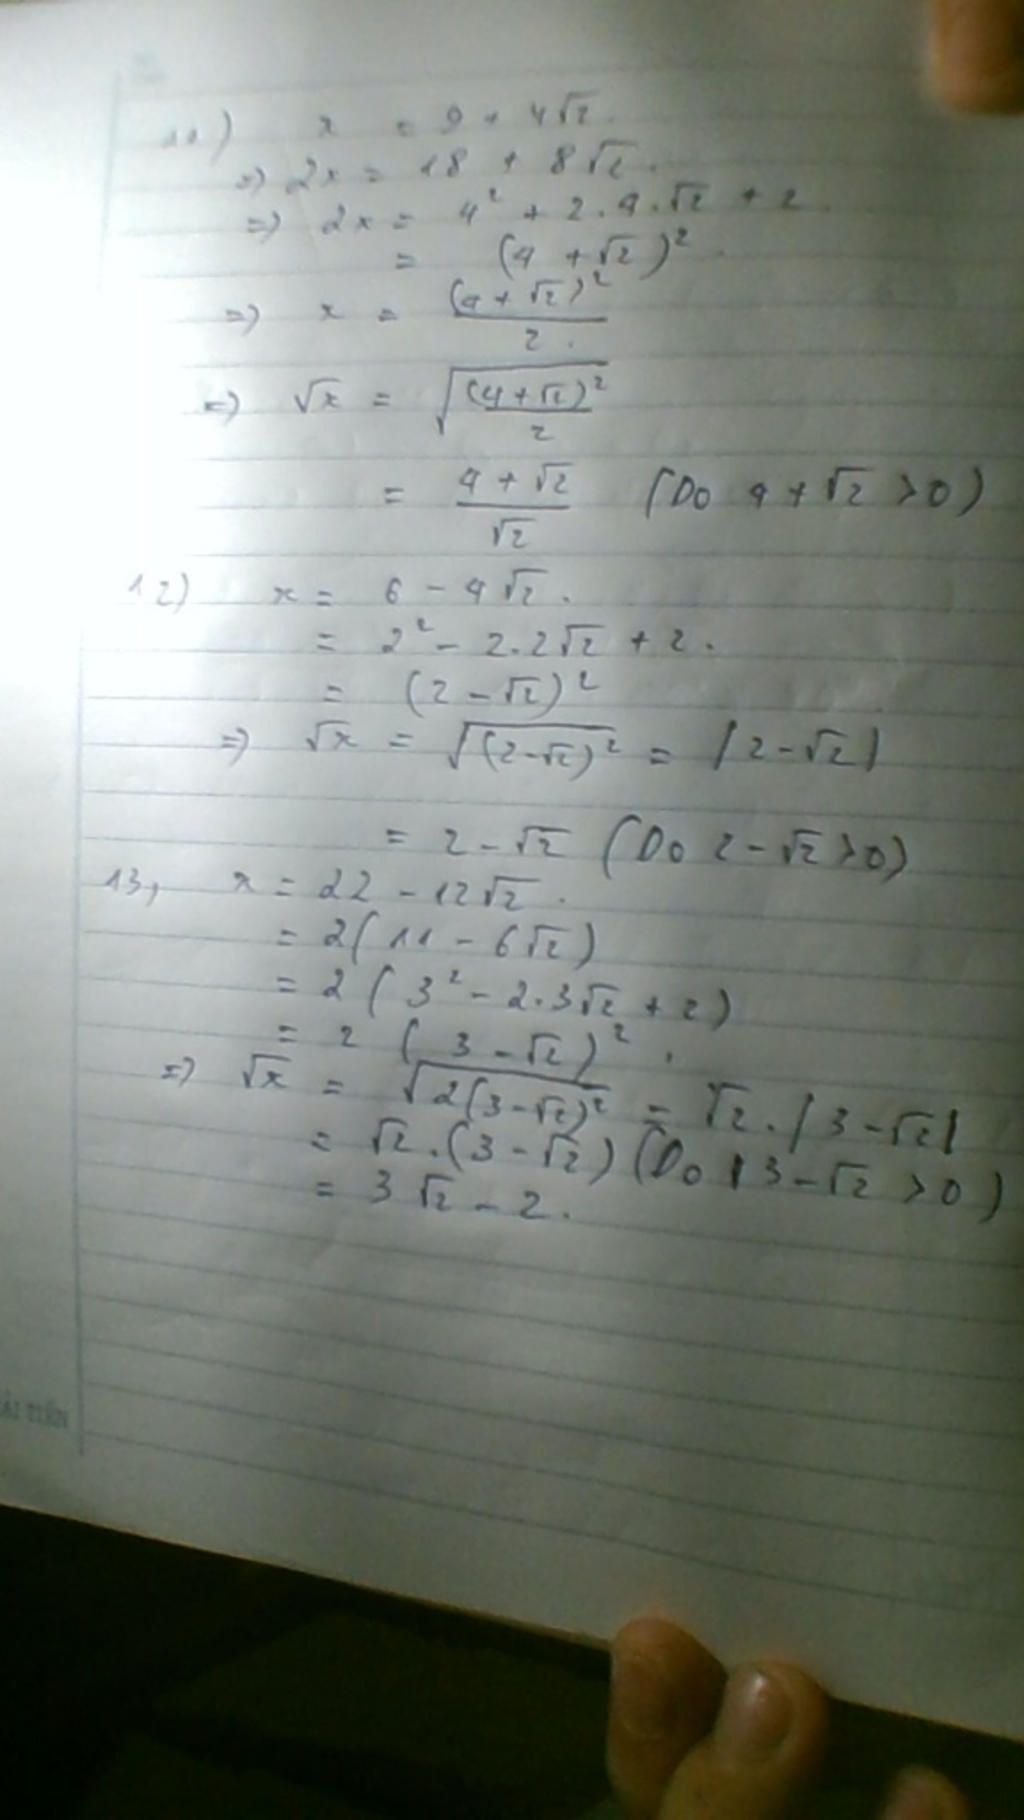 11) x = 9 + 4√2.
=> 2x = 18 + 8√2.
=> 2x = 4² + 2.4.√2 + 2.
= (4 + √2)²
=> x = (4 + √2)² / 2.
=> √x = √((4+√2)² / 2)
= (4 + √2) / √2 (Do 4 + √2 > 0)
12) x = 6 - 4√2.
= 2² - 2.2√2 + 2.
= (2 - √2)²
=> √x = √((2-√2)²) = |2-√2|
= 2 - √2 (Do 2 - √2 > 0)
13, x = 22 - 12√2.
= 2(11 - 6√2)
= 2(3² - 2.3√2 + 2)
= 2 (3 - √2)².
=> √x = √(2(3-√2)²) = √2.|3-√2|
= √2.(3-√2) (Do 3-√2 > 0)
= 3√2 - 2.